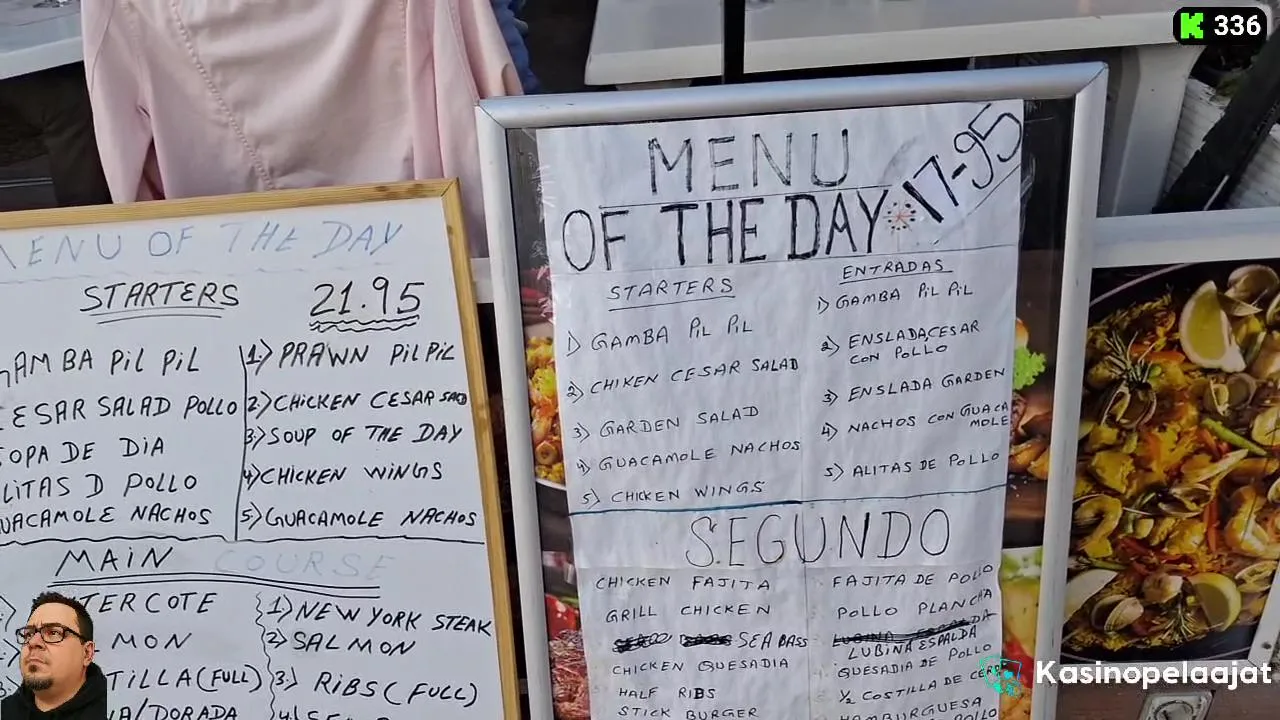 336
MENU OF THE DAY
STARTERS 21.95
AMBA PIL PIL
ESAR SALAD POLLO
OPA DE DIA
LITAS D POLLO
UACAMOLE NACHOS
1) PRAWN PIL PIL
2) CHICKEN CESAR
3) SOUP OF THE DAY
4) CHICKEN WINGS
5) GUACAMOLE NACHOS
MAIN COURSE
TERCOTE
MON
TILLA (FULL)
A/DORADA
1) NEW YORK STEAK
2) SALMON
3.) RIBS (FULL)
MENU
OF THE DAY 17-95
STARTERS
1) GAMBA PIL PIL
2) CHIKEN CESAR SALAD
3) GARDEN SALAD
4) GUACAMOLE NACHOS
5) CHICKEN WINGS
ENTRADAS
1) GAMBA PIL PIL
2) ENSLADA, CESAR
CON POLLO
3) ENSLADA GARDEN
4) NACHOS CON GUACA
MOLE
5) ALITAS DE POLLO
SEGUNDO
CHICKEN FAJITA
GRILL CHICKEN
SEA BASS
CHICKEN QUESADIA
HALF RIBS
STICK BURGER
FAJITA DE POLLO
POLLO PLANCHA
LUBINA ESPALDA
QUESADIA DE POLLO
1/2 COSTILLA DE CERD
HAMBURGUESA
POLLO
Kasinopelaajat